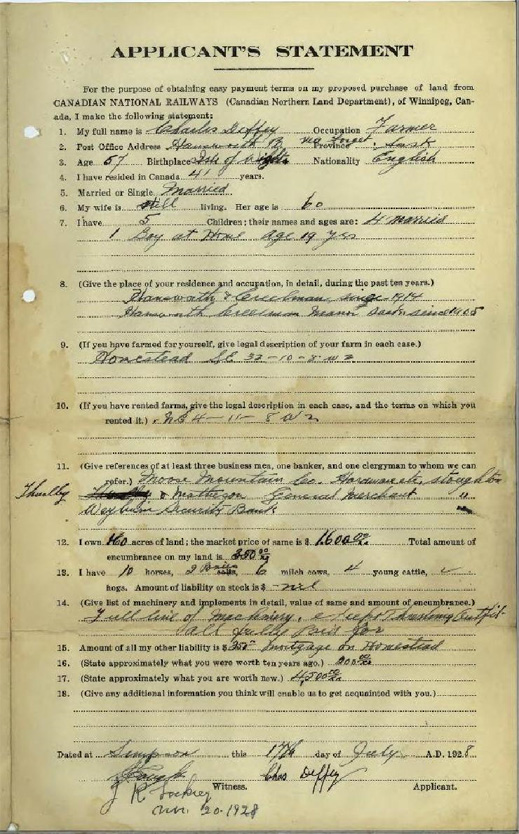 APPLICANT'S STATEMENT
For the purpose of obtaining easy payment terms on my proposed purchase of land from
CANADIAN NATIONAL RAILWAYS (Canadian Northern Land Department), of Winnipeg, Can-
ada, I make the following statement:
1. My full name is Charles Deffey Occupation Farmer
2. Post Office Address Province Sask
3. Age 57 Birthplace Isle of Nationality English
4. I have resided in Canada 41 years.
5. Married or Single Married
6. My wife is still living. Her age is 60
7. I have 5 Children; their names and ages are: 4 married
1 Boy at Home Age 19 yrs
8. (Give the place of your residence and occupation, in detail, during the past ten years.)
& Creelman since 1914
since 1905
9. (If you have farmed for yourself, give legal description of your farm in each case.)
Homestead SE 32-10-8 W 2
10. (If you have rented farms, give the legal description in each case, and the terms on which you
rented it.) 4-11-8 W 2
11. (Give references of at least three business men, one banker, and one clergyman to whom we can
refer.) Moose Mountain Co. Hardware, Stoughton
& General Merchant "
Weyburn Security Bank
12. I own 160 acres of land; the market price of same is $ 1600 Total amount of
encumbrance on my land is 350
13. I have 10 horses, 2 6 milch cows, 4 young cattle,
hogs. Amount of liability on stock is $ nil
14. (Give list of machinery and implements in detail, value of same and amount of encumbrance.)
Full line of Machinery, Outfit
all fully Paid for
15. Amount of all my other liability is $ 350 Mortgage on Homestead
16. (State approximately what you were worth ten years ago.)
17. (State approximately what you are worth now.) 4500
18. (Give any additional information you think will enable us to get acquainted with you.)
Dated at Simpson this 17th day of July A.D. 1928
Chas Deffey
Witness. Applicant.
J R
20-1928